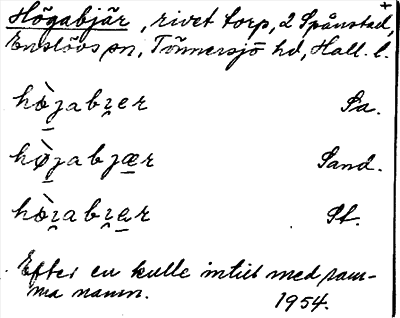 Högabjär, rivet torp, 2 Spånstad,
Enslövs sn, Tönnersjö hd, Hall. l.
hò̱gabi̯er Sa.
hø̱̀gabjæ̱r Sand.
hò̱ɿabi̯a̱r St.
Efter en kulle intill med sam-
ma namn.
1954.